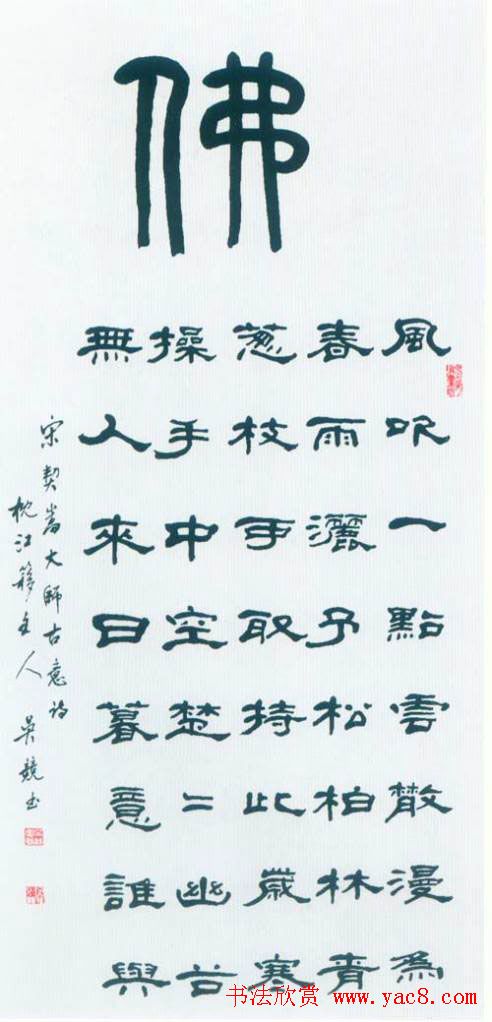 佛
風吹一點雲散漫為
春雨灑予松柏林青
葱枝可取持此歲寒
操手中空楚二幽谷
無人來日暮意誰與
宋契嵩大師古意詩
枕江簃主人 吳競书
书法欣赏 www.yac8.com